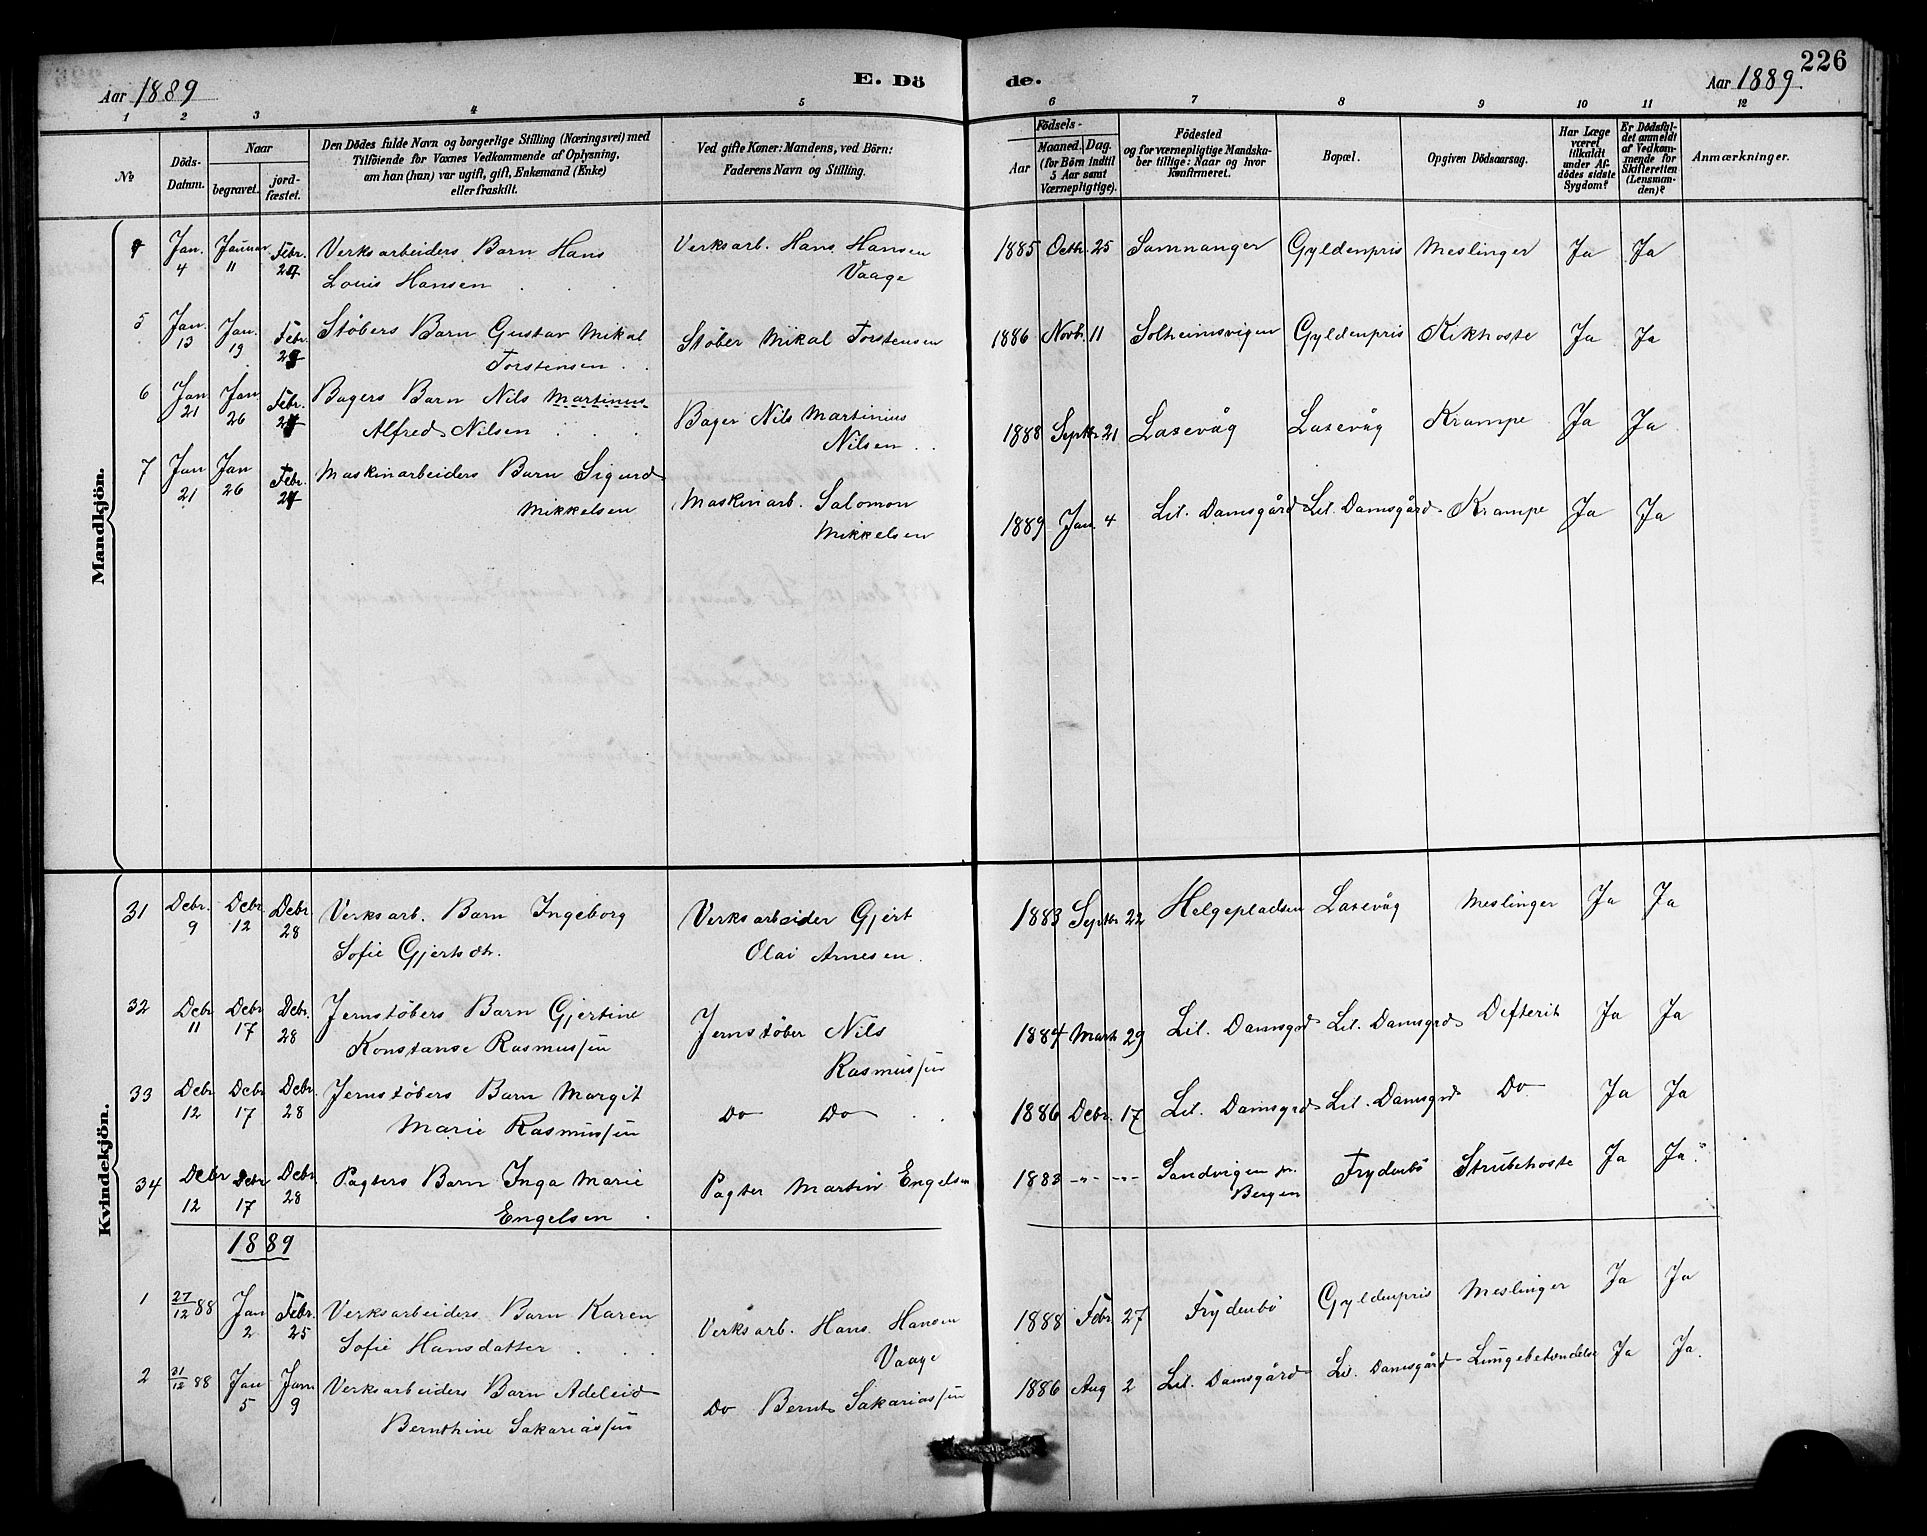 226
Aar 1889
E. Dö de.
Aar 1889.
1 2 3 4 5 6 7 8 9 10 11 12
№
Döds-
Datum.
Naar
begravet.
jord-
fæstet.
Den Dödes fulde Navn og borgerlige Stilling (Næringsvei) med
Tilföiende for Voxnes Vedkommende af Oplysning,
om han (hun) var ugift, gift, Enkemand (Enke)
eller fraskilt.
Ved gifte Koner: Mandens, ved Börn:
Faderens Navn og Stilling.
Födsels-
Aar
Maaned. Dag.
(for Börn indtil
5 Aar samt
Værnepligtige).
Födested
og for værnepligtige Mandska-
ber tillige: Naar og hvor
konfirmeret.
Bopæl.
Opgiven Dödsaarsag.
Har Læge
været
tilkaldt
under Af-
dödes sidste
Sygdom?
Er Dödsfal-
det anmeldt
af Vedkom-
mende for
Skifteretten
(Lensman-
den)?
Anmærkninger.
Mandkjön.
4 Jan. 4 Januar 11 Febr. 24 Verksarbeiders Barn Hans Verksarb. Hans Hansen 1885 Octbr. 25 Samnanger Gyldenpris Meslinger Ja Ja
Louis Hansen Vaage
5 Jan. 13 Jan. 19 Febr. Støbers Barn Gustav Mikal Støber Mikal Torstensen 1886 Novb. 11 Solheimsvigen Gyldenpris Kikhoste Ja Ja
Torstensen
6 Jan 21 Jan 26 Febr. Bagers Barn Nils Martinus Bager Nils Martinius 1888 Septbr 21 Laxevåg Laxevåg Krampe Ja Ja
Alfred Nilsen Nilsen
7 Jan 21 Jan 26 Febr. Maskinarbeiders Barn Sigurd Maskinarb. Salomon 1889 Jan. 4 Lil. Damsgård Lil. Damsgård Krampe Ja Ja
Mikkelsen Mikkelsen
Kvindekjön.
31 Debr. 9 Debr 12 Debr 28 Verksarb. Barn Ingeborg Verksarbeider Gjert 1883 Septbr 22 Helgepladsen Laxevåg Meslinger Ja Ja
Sofie Gjertsdtr. Olai Arnesen.
32 Debr 11 Debr 17 Debr. 28 Jernstøbers Barn Gjertine Jernstøber Nils 1884 Marts 29 Lil. Damsgrd Lil. Damsgrd Defterit Ja Ja
Konstanse Rasmussen Rasmussen
33 Debr 12 Debr 17 Debr 28 Jernstøbers Barn Margit Do Do 1886 Debr. 17 Lil. Damsgrd Lil. Damsgrd Do Ja Ja
Marie Rasmussen
34 Debr 12 Debr 17 Debr 28 Pagters Barn Inga Marie Pagter Martin Engelsen 1883 -"- -"- Sandvigen pr. Frydenbö Strubehoste Ja Ja
Engelsen Bergen
1889
1 27/12 88 Jan 2 Febr. 25 Verksarbeiders Barn Karen Verksarb. Hans Hansen 1888 Febr 27 Frydenbö Gyldenpris Meslinger Ja Ja
Sofie Hansdatter Vaage
2 31/12 88 Jan 5 Jan 9 Verksarbeiders Barn Adeleid Do Bernt Sakariassen 1886 Aug 2 Lil. Damsgård Lil. Damsgård Lungebetændelse Ja Ja.
Bernthine Sakariassen